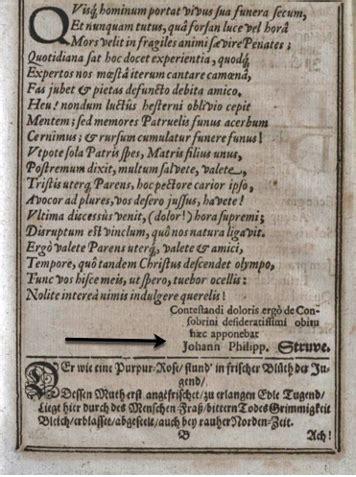 QVisq́; hominum portat vivus sua funera secum,
Et nunquam tutus, quâ forsan luce vel horâ
Mors velit in fragiles animi sævire Penates;
Quotidiana sat hoc docet experientia, quodq́;
Expertos nos mœstâ iterum cantare camœnâ,
Fas jubet & pietas defuncto debita amico.
Heu! nondum luctûs hesterni oblivio cepit
Mentem; sed memores Patruelis funus acerbum
Cernimus; & rursum cumulatur funere funus!
Utpote sola Patris spes, Matris filius unus,
Postremum dixit, multum salvete, valete,
Tristis uterq́; Parens, hoc pectore carior ipso,
Avocor ad plures, vos desero jussus, havete!
Ultima discessûs venit, (dolor!) hora supremi;
Disruptum est vinclum, quô nos natura ligavit.
Ergò valete Parens uterq́;, valete & amici,
Tempore, quô tandem Christus descendet olympo,
Tunc vos hisce meis, ut spero, tuebor ocellis:
Nolite intereà nimis indulgere querelis!
Contestandi doloris ergò de Con-
sobrini desideratissimi obitu
hæc apponebat
Johann Philipp. Struve.
DEr wie eine Purpur-Rose/ stund' in frischer Blüth der Ju-
gend/
Dessen Muth erst angefrischet/ zu erlangen Edle Tugend/
Liegt hier durch des Menschen-Fraß/ bittern Todes Grimmigkeit
Bleich/ erblasset/ abgeseelt/ auch bey rauher Norden-Zeit.
B
Ach!